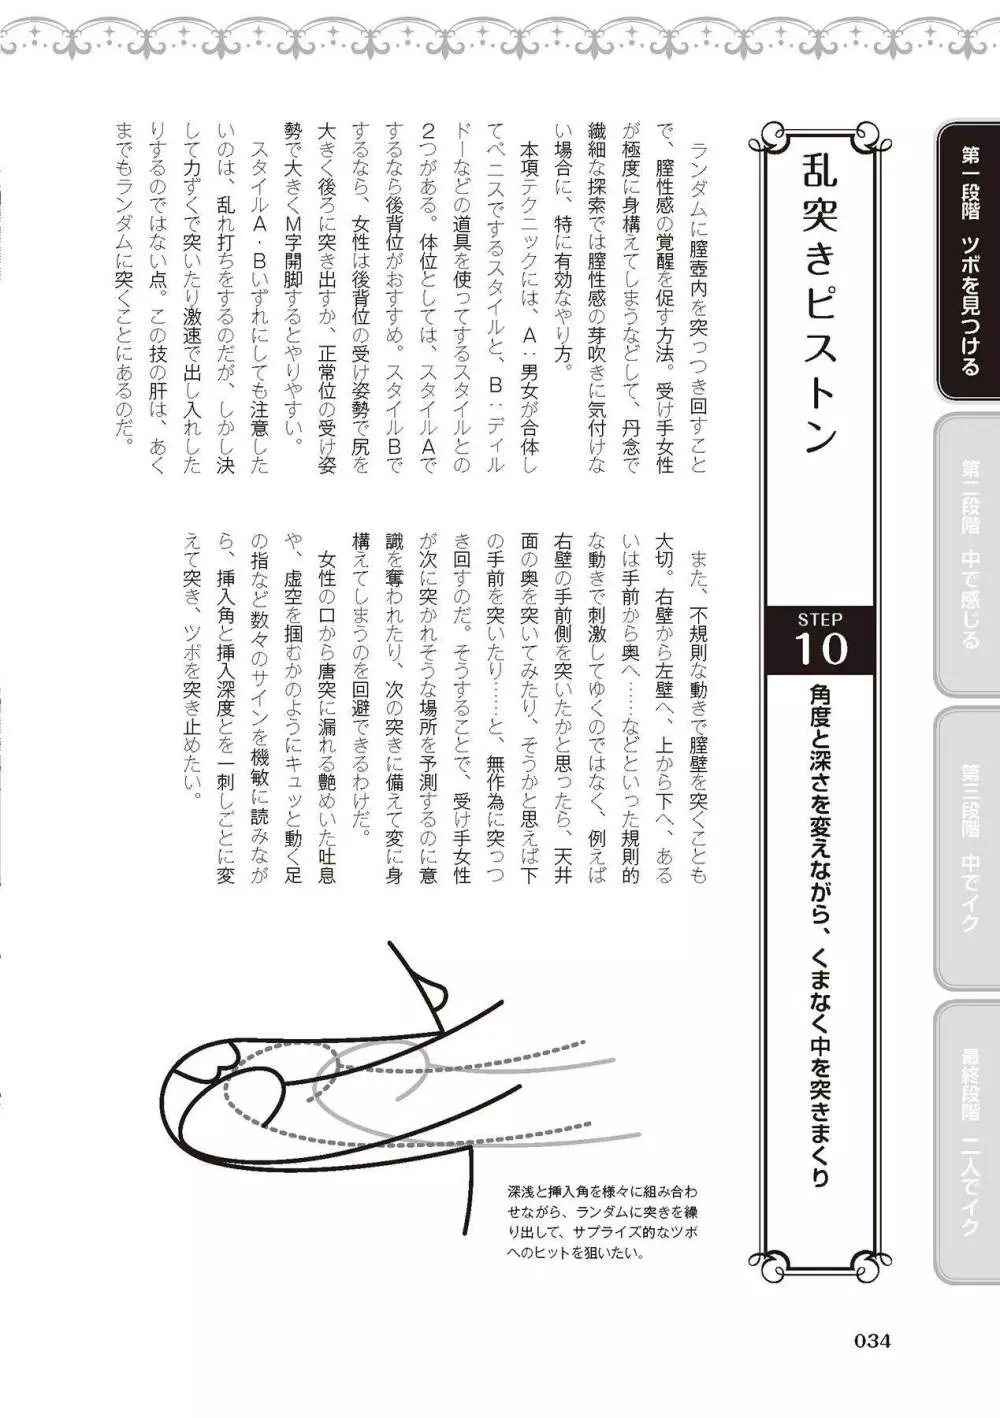 第一段階　ツボを見つける
第二段階　中で感じる
第三段階　中でイク
最終段階　二人でイク
乱突きピストン
STEP
10
角度と深さを変えながら、くまなく中を突きまくり
　ランダムに膣壺内を突っつき回すこと
で、膣性感の覚醒を促す方法。受け手女性
が極度に身構えてしまうなどして、丹念で
繊細な探索では膣性感の芽吹きに気付けな
い場合に、特に有効なやり方。
　本項テクニックには、A：男女が合体し
てペニスでするスタイルと、B：ディル
ドーなどの道具を使ってするスタイルとの
2つがある。体位としては、スタイルAで
するなら後背位がおすすめ。スタイルBで
するなら、女性は後背位の受け姿勢で尻を
大きく後ろに突き出すか、正常位の受け姿
勢で大きくM字開脚するとやりやすい。
　スタイルA・Bいずれにしても注意した
いのは、乱れ打ちをするのだが、しかし決
して力ずくで突いたり激速で出し入れした
りするのではない点。この技の肝は、あく
までもランダムに突くことにあるのだ。
　また、不規則な動きで膣壁を突くことも
大切。右壁から左壁へ、上から下へ、ある
いは手前から奥へ……などといった規則的
な動きで刺激してゆくのではなく、例えば
右壁の手前側を突いたかと思ったら、天井
面の奥を突いてみたり、そうかと思えば下
の手前を突いたり……と、無作為に突っつ
き回すのだ。そうすることで、受け手女性
が次に突かれそうな場所を予測するのに意
識を奪われたり、次の突きに備えて変に身
構えてしまうのを回避できるわけだ。
　女性の口から唐突に漏れる艶めいた吐息
や、虚空を掴むかのようにキュッと動く足
の指など数々のサインを機敏に読みなが
ら、挿入角と挿入深度とを一刺しごとに変
えて突き、ツボを突き止めたい。
深浅と挿入角を様々に組み合わ
せながら、ランダムに突きを繰
り出して、サプライズ的なツボ
へのヒットを狙いたい。
034